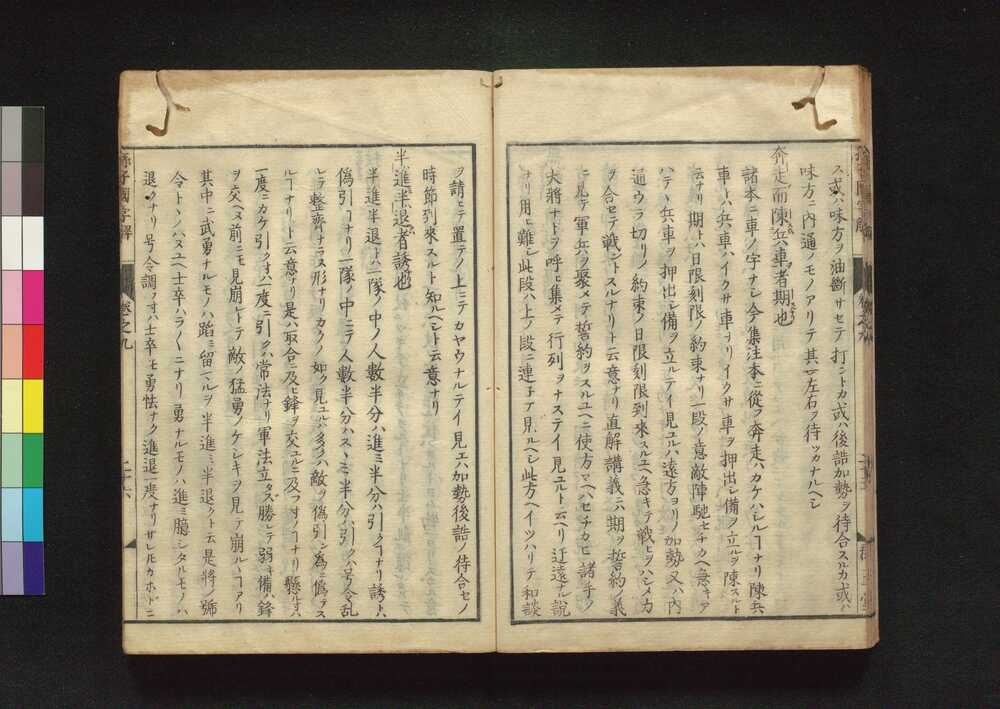 ス或ハ味方ヲ油斷サセテ打ントカ或ハ後詰加勢ヲ待合スルカ或ハ
味方ニ内通ノモノアリテ其左右ヲ待ツカナルヘシ
奔走而陳兵車者期也
諸本ニ車ノ字ナシ今集注本ニ從フ奔走ハカケハシルヿナリ陳兵
車トハ兵車ハイクサ車ナリイクサ車ヲ押出シ備ヲ立ルヲ陳スルト
法ナリ期トハ日限刻限ノ約束ナリ一段ノ意敵陣馳セチカヘ急キア
ハテヽ兵車ヲ押出シ備ヲ立ルテイ見ユルハ遠方ヨリノ加勢又ハ内
通ウラ切リノ約束ノ日限刻限到來スルユヘ急キテ戰ヒヲハシメカ
ヲ合セテ戰ントスルナリト云意ナリ直解講義ニハ期ヲ誓約ノ義
ニ見テ軍兵ヲ聚メテ誓約ヲスルユヘニ使方マヘハセチカヒ諸手ノ
大將ナトヲ呼ヒ集メテ行列ヲナステイ見ユルト云ヘリ迂遠ナル説
ナリ用ヒ難シ此段ハ上ノ段ニ連子テ見ルヘシ此方ヘイツハリテ和談
ヲ請ヒテ置テノ上ニテカヤウナルテイ見エハ加勢後詰ノ待合セノ
時節到來スルト知ルヘシト云意ナリ
半進半退者誘也
半進半退トハ一隊ノ中ノ人數半分ハ進ミ半分ハ引クヿナリ誘トハ
偽引ヿナリ一隊ノ中ニテ人數半分ハスヽミ半分ハ引クハ号令乱
レテ整齊ナラヌ形ナリカクノ如ク見ユルハ多クハ敵ヲ偽引ン為ニ偽テス
ルヿナリト云意ナリ是ハ取合ニ及ヒ鋒ヲ交ユルニ及フ寸ノヿナリ懸ル寸ハ
一度ニカケ引ク寸ハ一度ニ引クハ常法ナリ軍法立タズ勝レテ弱キ備ハ鋒
ヲ交ヘヌ前ニモ見崩レトテ敵ノ猛勇ノケシキヲ見テ崩ルヽヿアリ
其中ニ武勇ナルモノハ蹈ミ留ヘルヲ半進ミ半退クト云是將ノ號
令トヽノハスユヘ士卒ハラ〱ニナリ勇ナルモノハ進ミ臆シタルモノハ
退クナリ号令調フ寸ハ士卒モ勇怯ナク進退一度ナリサレトモカホドニ
孫子國字解
卷之九
二十六